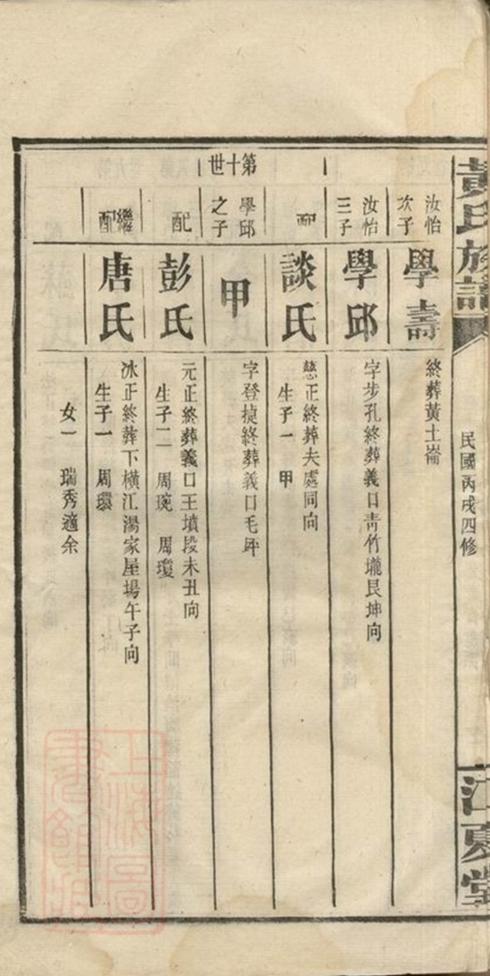 黃氏族譜
民國丙戌四修
江夏堂
汝怡
次子
學壽
終葬黃土崙
汝怡
三子
學邱
字步孔終葬義口青竹壠艮坤向
配
談氏
慈正終葬夫處同向
生子一 甲
第十世
學邱
之子
甲
字登捷終葬義口毛坪
配
彭氏
元正終葬義口王墳段未丑向
生子二 周琬 周瓊
繼配
唐氏
冰正終葬下橫江湯家屋場午子向
生子一 周環
女一 瑞秀適余
上海圖書館藏